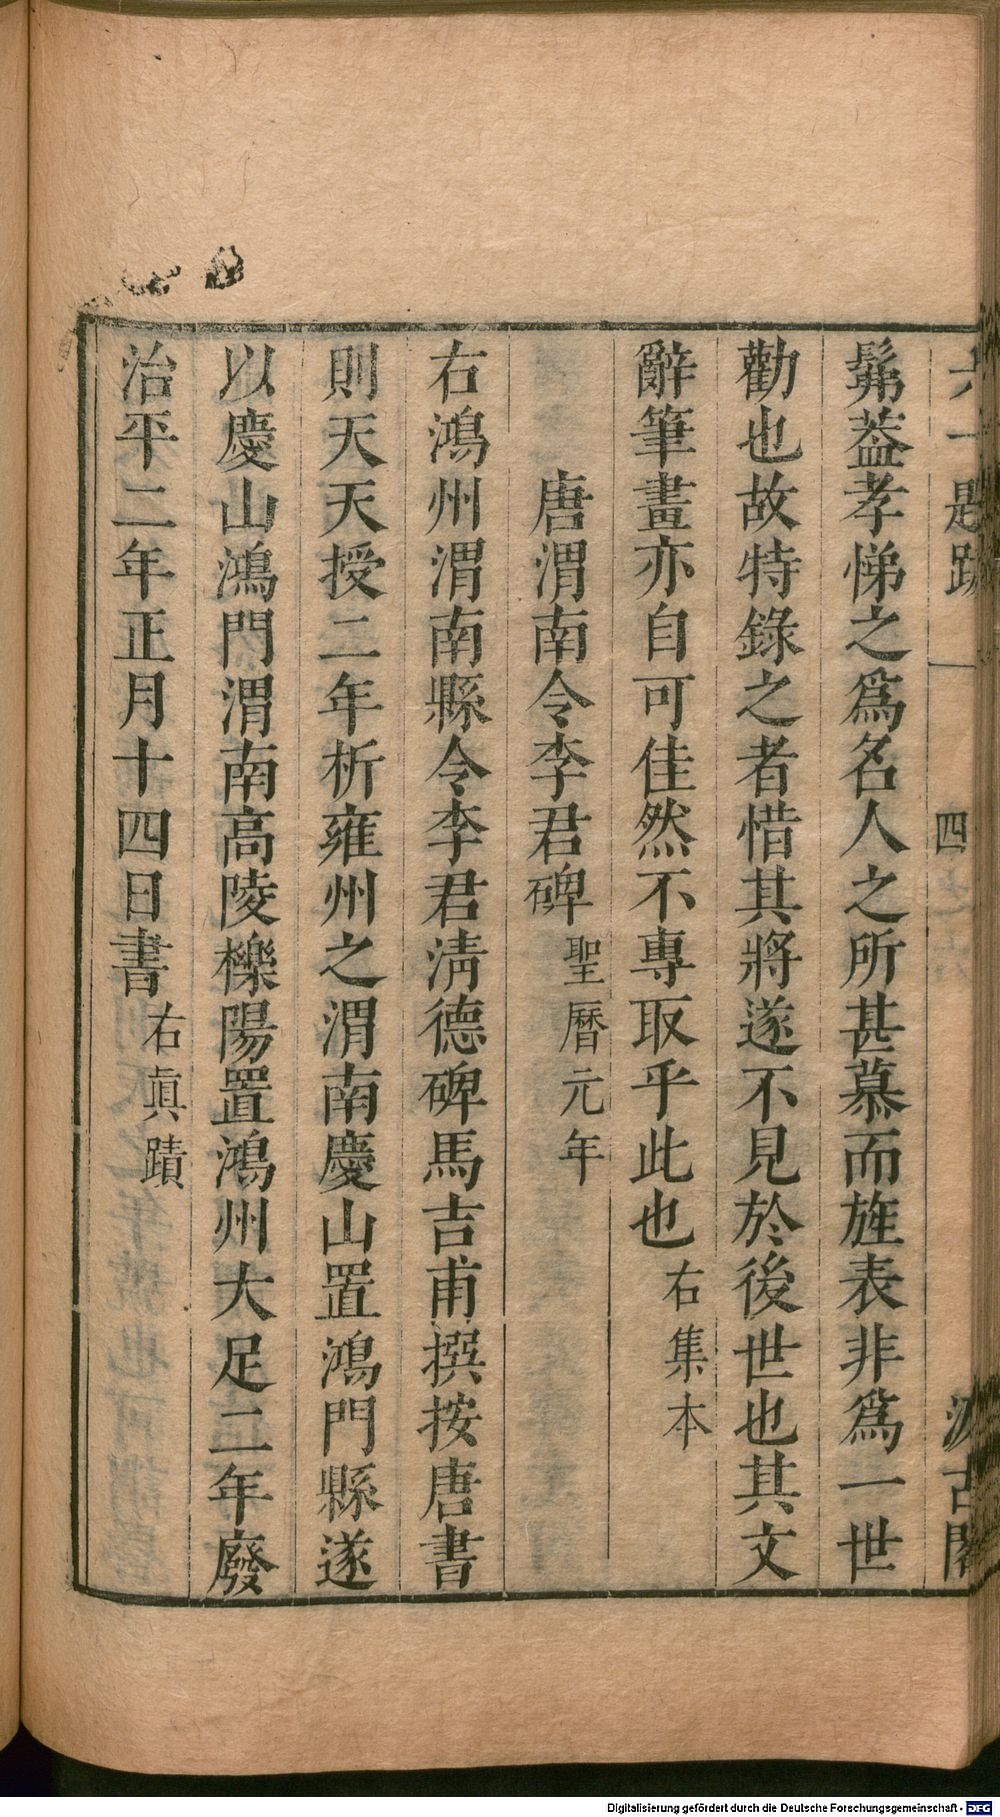 六一題跋 四 汲古閣
髴葢孝悌之爲名人之所甚慕而旌表非爲一世
勸也故特錄之者惜其將遂不見於後世也其文
辭筆畫亦自可佳然不專取乎此也右集本
唐渭南令李君碑聖曆元年
右鴻州渭南縣令李君淸德碑馬吉甫撰按唐書
則天天授二年析雍州之渭南慶山置鴻門縣遂
以慶山鴻門渭南高陵櫟陽置鴻州大足二年廢
治平二年正月十四日書右眞蹟
Digitalisierung gefördert durch die Deutsche Forschungsgemeinschaft - DFG